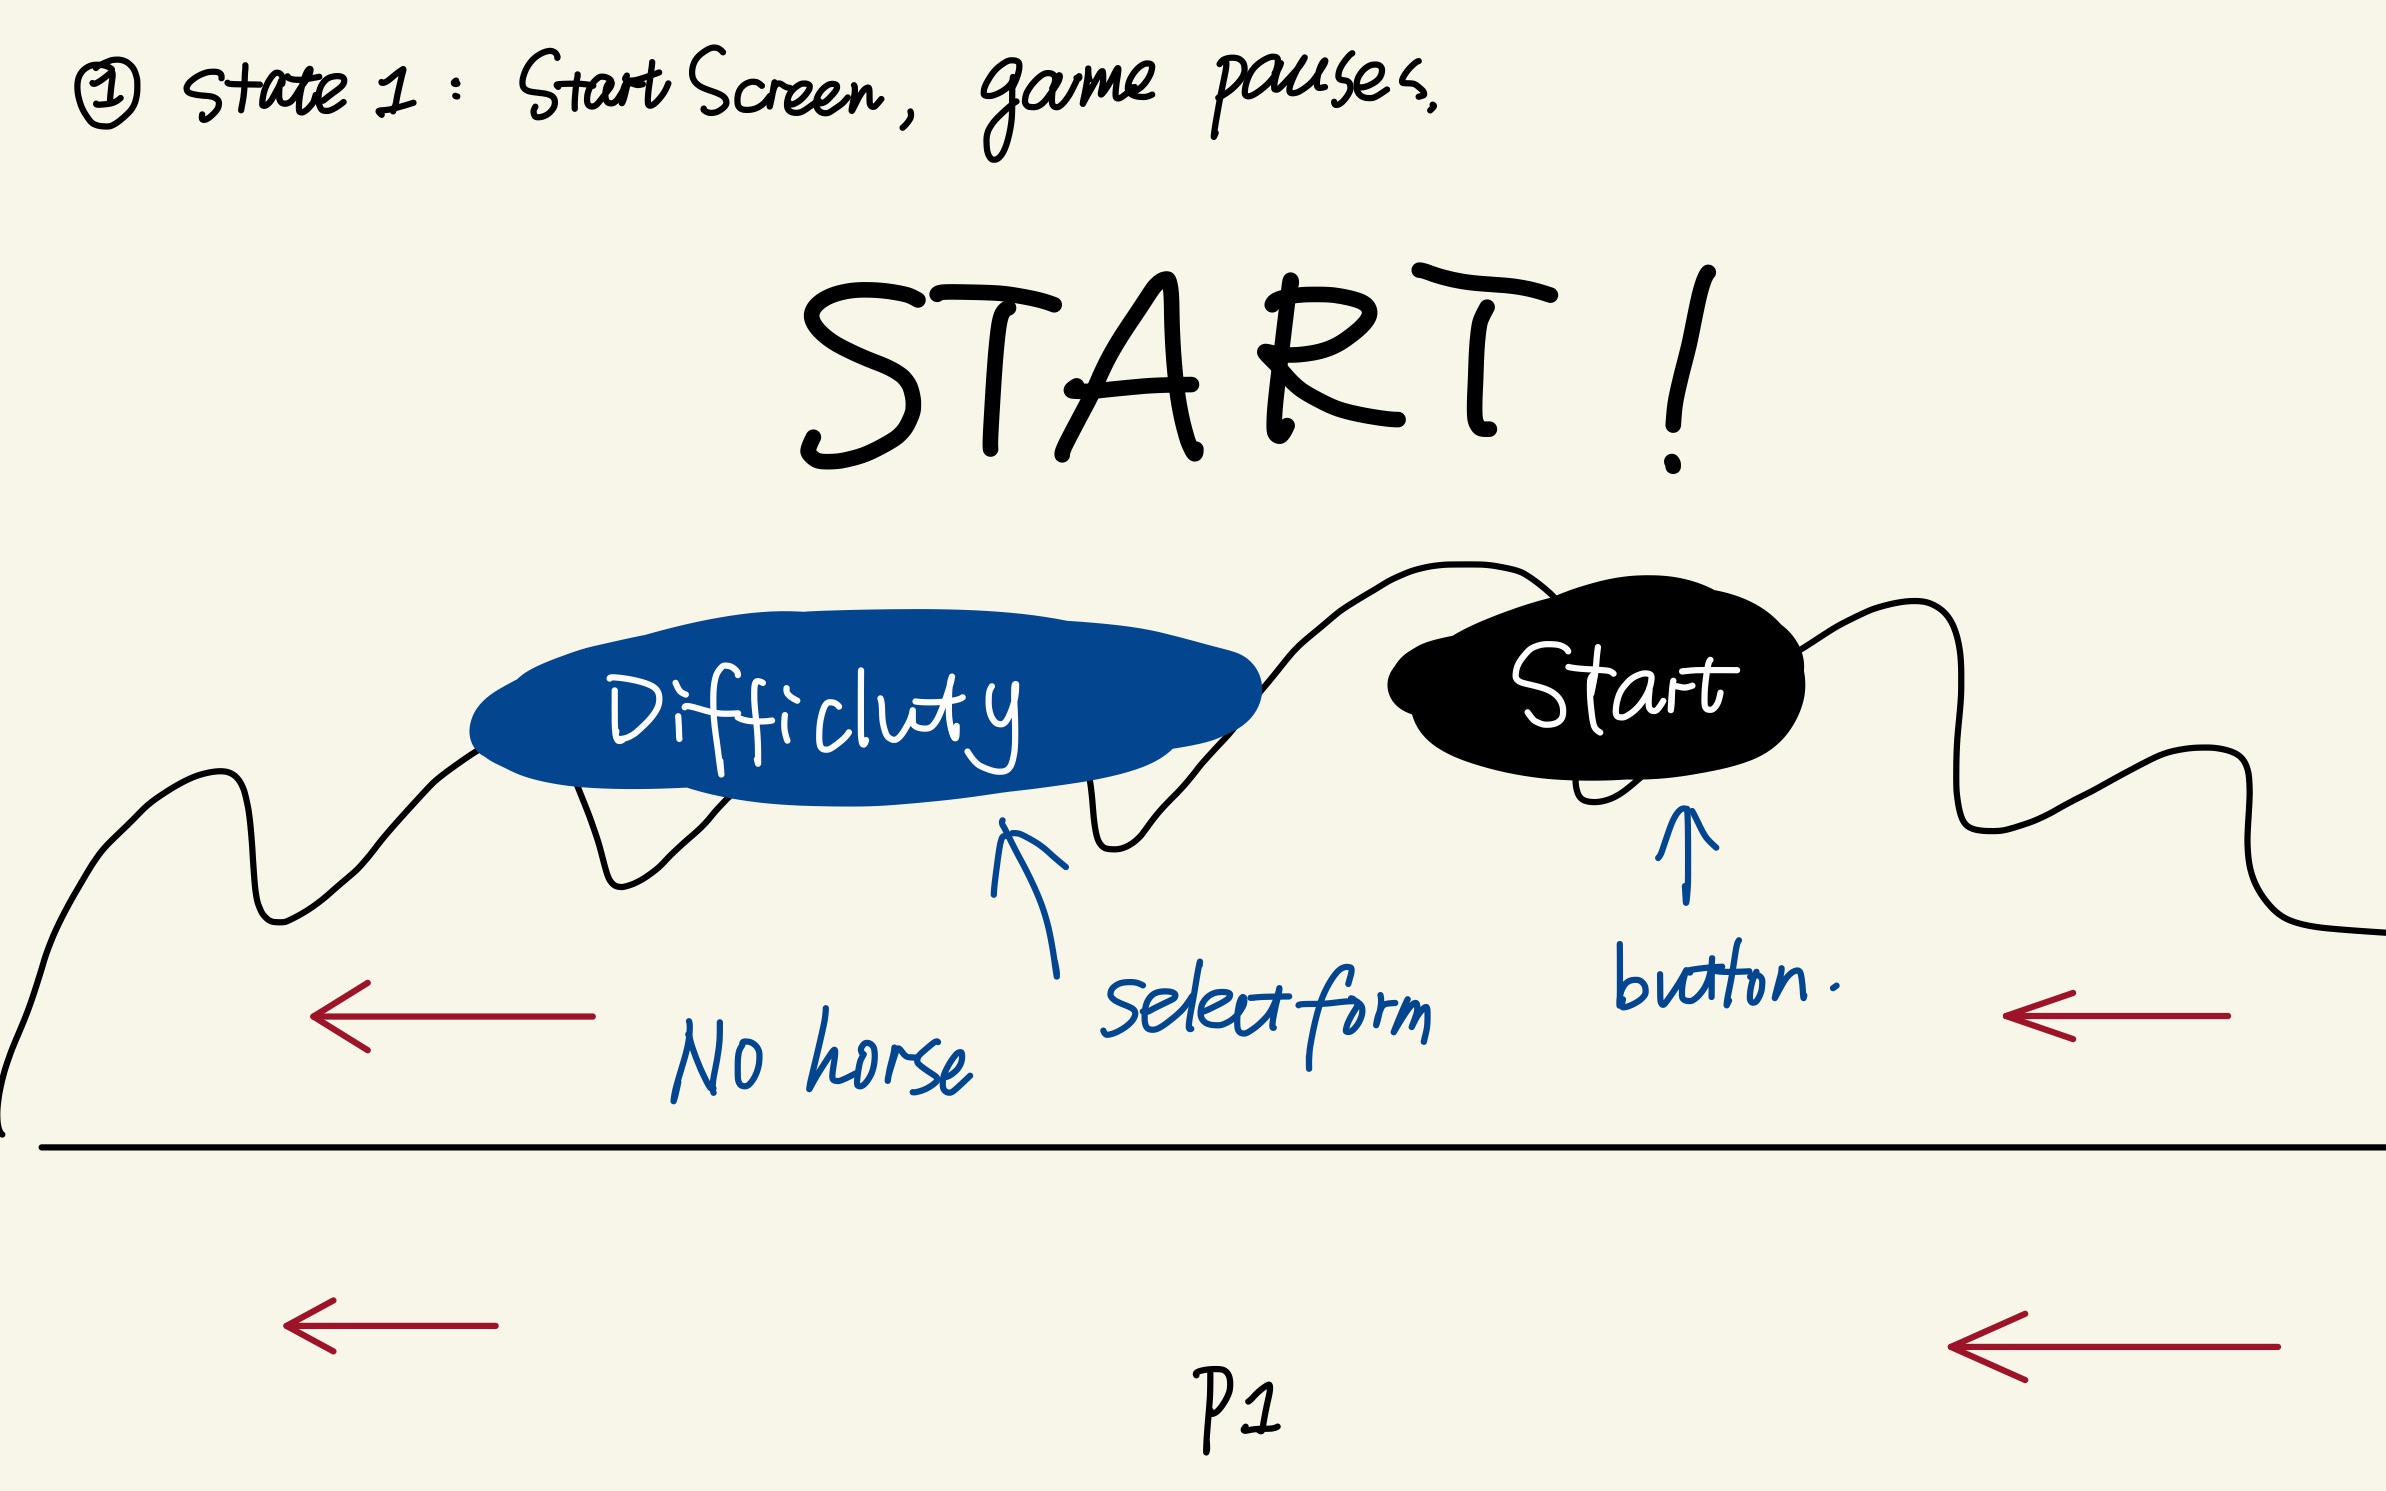 ① State 1 : Start Screen, game pauses.
START !
Difficluty
Start
select form
button.
No horse
P1